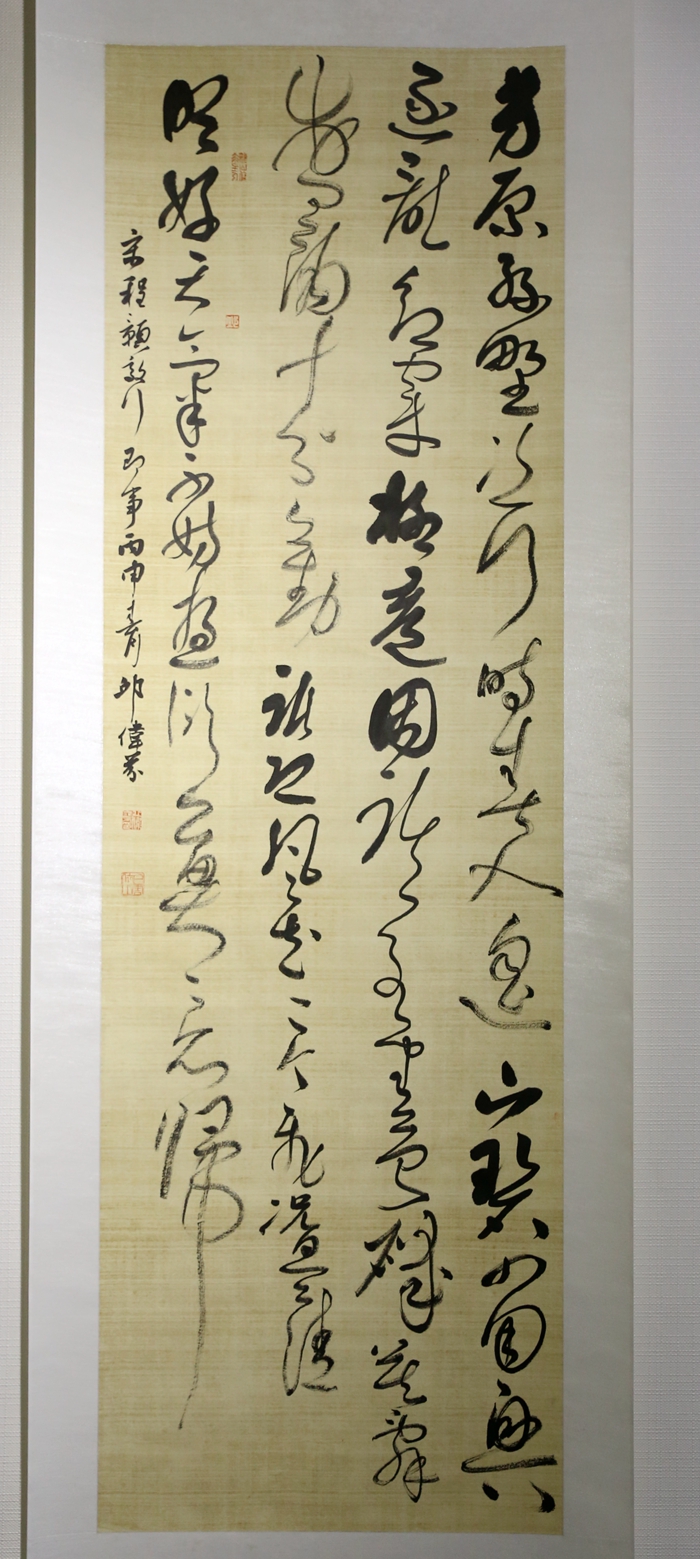 芳原綠野恣行時春入遙山碧四圍興
逐亂紅穿柳巷困臨流水坐苔磯莫辭
盞酒十分勸祇恐風花一片飛況是清
明好天氣不妨遊衍莫忘歸
宋程顥郊行即事丙申 邱偉